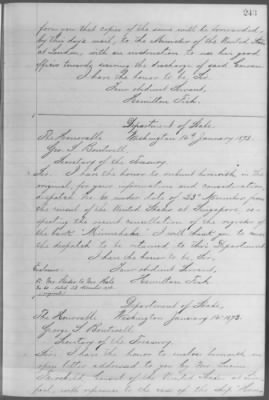 243
form you that copies of the same will be forwarded,
by this day's mail, to the Minister of the United States
at London, with an instruction to use his good
offices towards securing the discharge of said
I have the honor to be, Sir,
Your obedient Servant,
Hamilton Fish.
Department of State,
The Honorable Washington 14th January 1873.
Geo. S. Boutwell
Secretary of the Treasury.
Sir. I have the honor to submit herewith in the
original, for your information and consideration,
dispatch No. 60 under date of 23rd November from
the consul of the United States at Singapore,
specting the recent cancellation of the register of
the bark "Minnehaha." I will thank you to cause
the dispatch to be returned to this Department.
I have the honor to be, Sir,
Enclosure. Your obedient Servant,
Hamilton Fish
Original
Department of State,
The Honorable Washington January 15th 1873.
George S. Boutwell
Secretary of the Treasury.
Sir. I have the honor to enclose herewith an
open letter addressed to you by Mr. Lucien
Consul of the United States at
with reference to the case of the ship